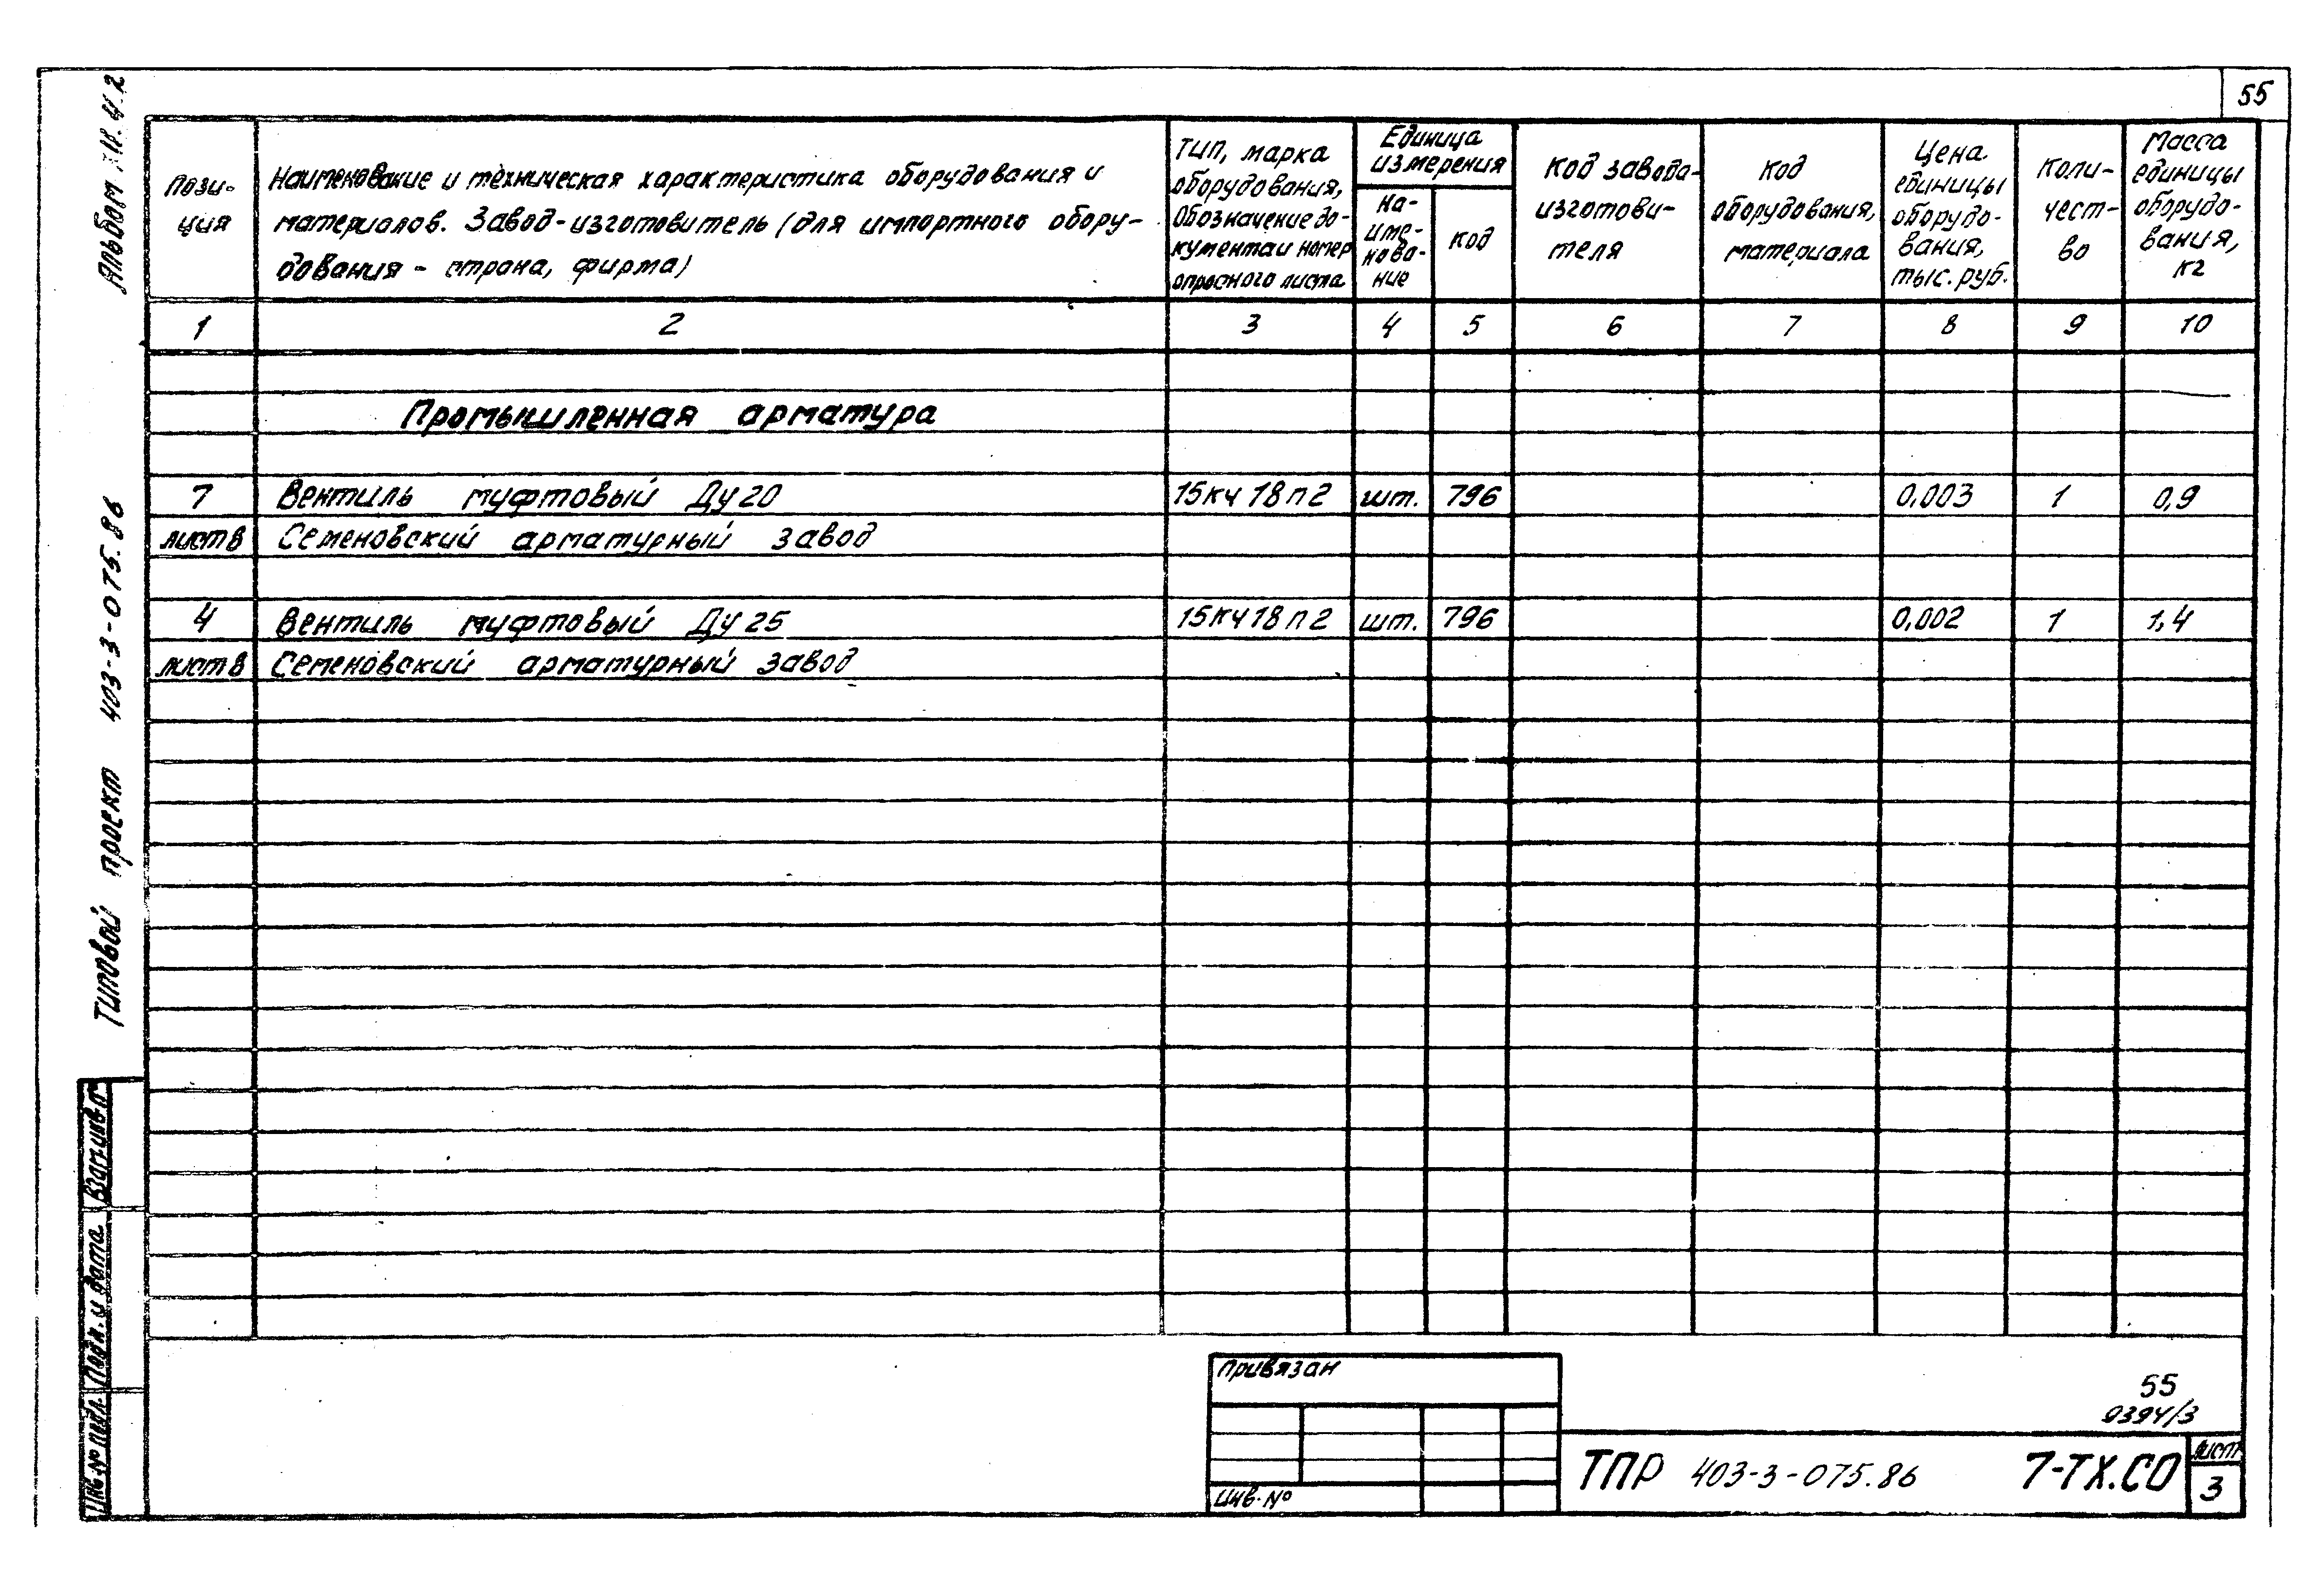 55
Альбом
ч.2
Типовой проект 403-3-075.86
Пози-
ция
Наименование и техническая характеристика оборудования и
материалов. Завод-изготовитель (для импортного обору-
дования - страна, фирма)
Тип, марка
оборудования,
Обозначение до-
кумента и номер
опросного листа
Единица
измерения
На-
име-
нова-
ние
код
Код завода-
изготови-
теля
Код
оборудования,
материала
Цена
единицы
оборудо-
вания,
тыс. руб.
Коли-
чест-
во
Масса
единицы
оборудо-
вания,
кг
1 2 3 4 5 6 7 8 9 10
Промышленная арматура
7 Вентиль муфтовый Ду 20 15кч 18 п 2 шт. 796 0,003 1 0,9
лист 8 Семеновский арматурный завод
4 Вентиль муфтовый Ду 25 15кч 18 п 2 шт. 796 0,002 1 1,4
лист 8 Семеновский арматурный завод
Взам. инв. №
Подп. и дата
Инв. № подл.
Привязан
Инв. №
55
9394/3
ТПР 403-3-075.86 7-ТХ.СО
Лист
3